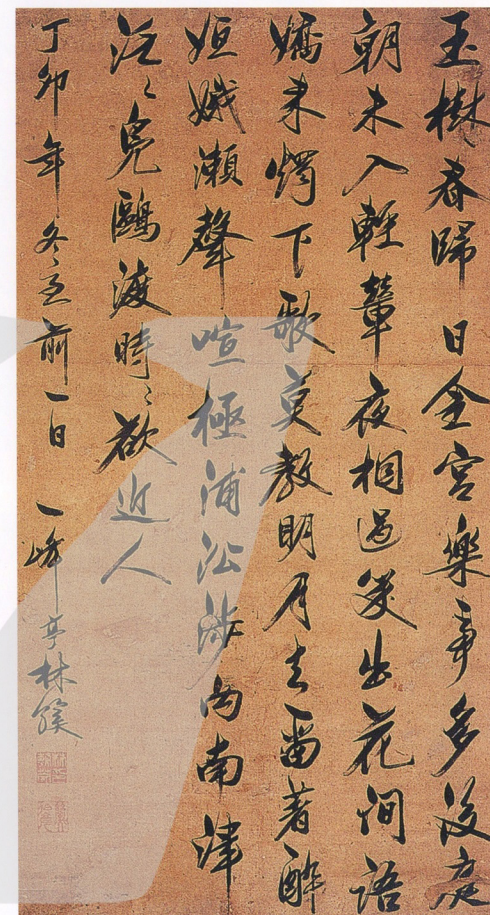 玉樹春歸日金宮樂事多後庭
朝未入輕輦夜相過笑出花間語
嬌來燭下歌莫教明月去留著醉
姮娥瀨聲喧極浦沿涉向南津
泛〻鳧鷗渡時〻欲近人
丁卯年冬至前一日 一峰亭林